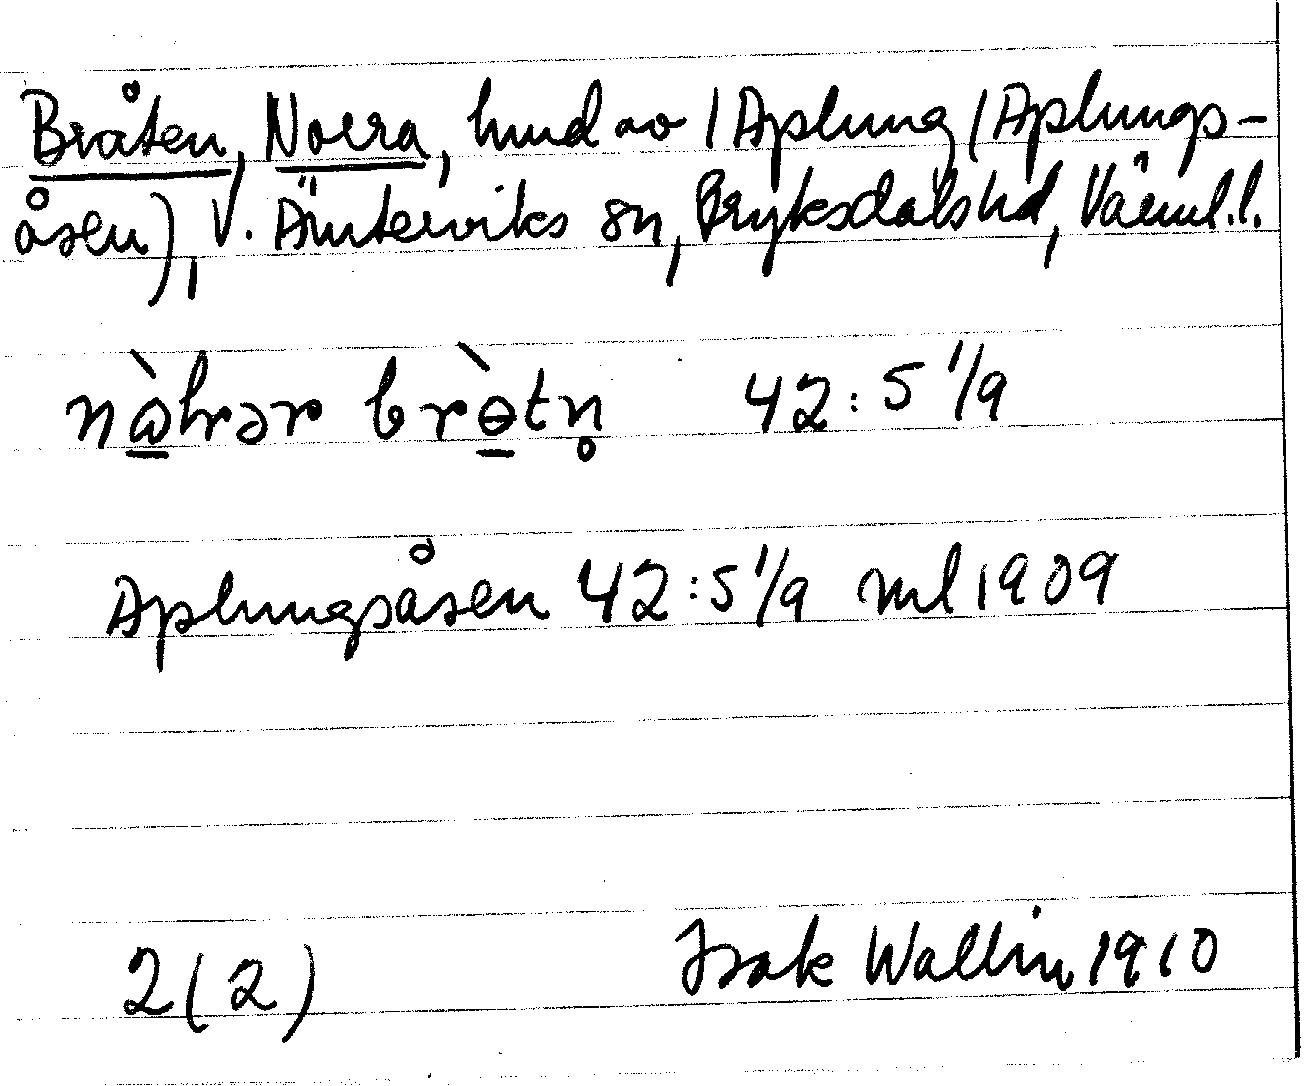 Bråten, Norra, hmd av 1 Aplung (Aplungs-
åsen), V. Ämterviks sn, Fryksdals hd, Värml.l.
nàhrər brɵ̀tn̥ 42:5 1/9
Aplungsåsen 42:5 1/9 ml 1909
2 (2) Isak Wallin 1910